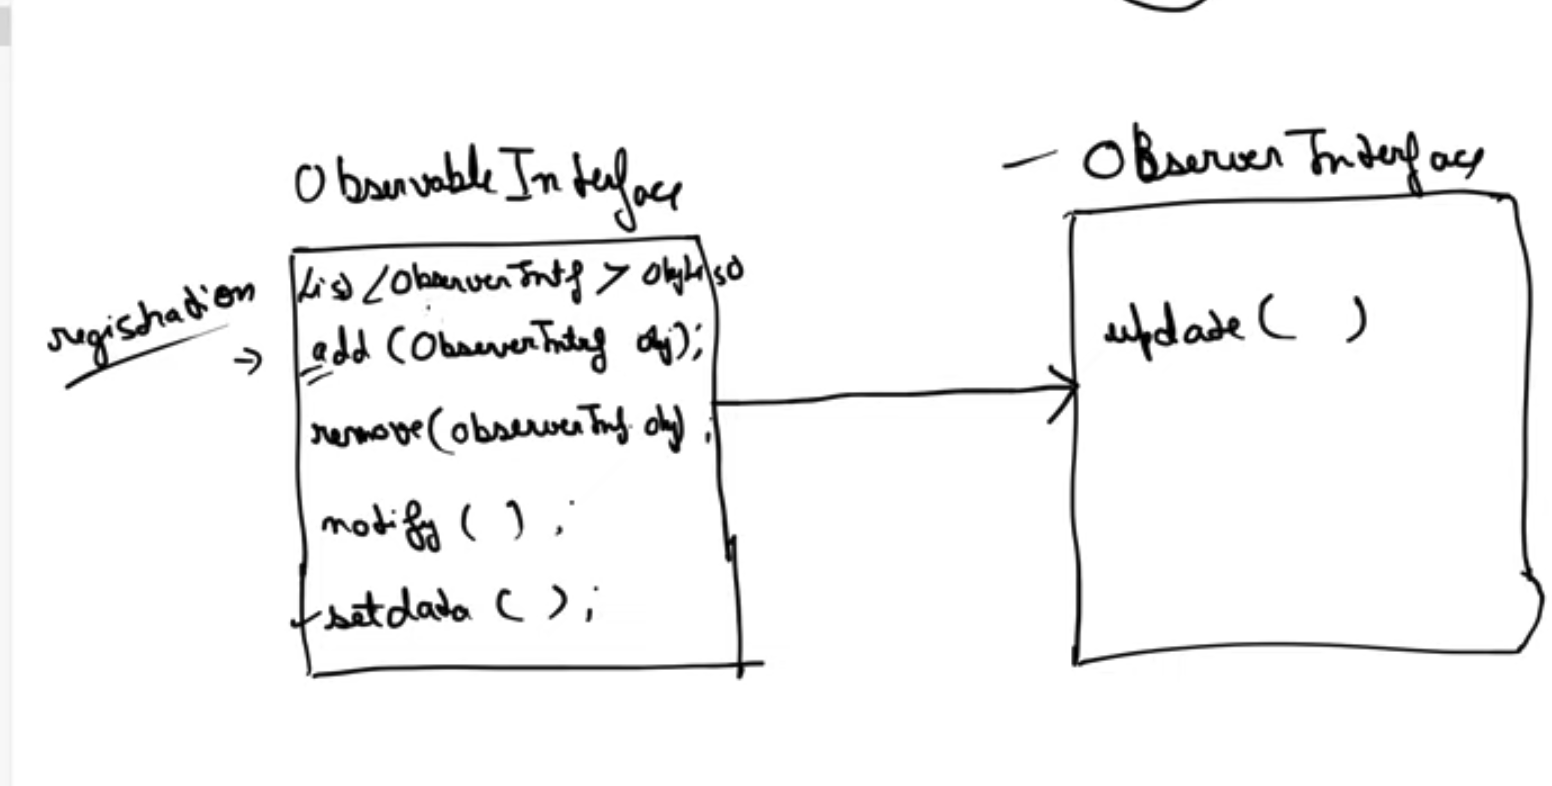 Observable Interface
registration →
List <ObserverIntf> ObjList
add (ObserverIntrf obj);
remove (observerInf. obj);
notify ( ) ;
setdata ( ) ;
— Observer Interface
update ( )